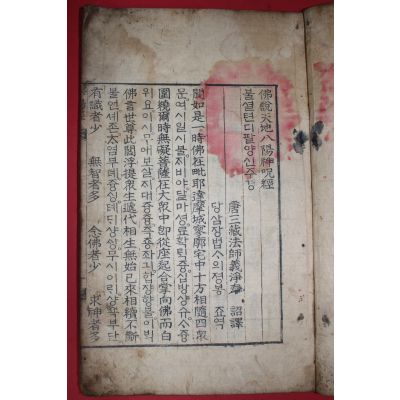 佛說天地八陽神呪經
불셜텬디팔양신주경
唐三藏法師義淨奉 詔譯
당삼장법ᄉ의졍봉 죠역
聞如是一時佛在毗耶達摩城寥廓宅中十方相隨四衆
문여시일시불ᄌᆡ비야달마셩료확ᄐᆡᆨ듕십방샹슈ᄉᆞ즁
圍繞爾時無礙菩薩在大衆中即從座起合掌向佛而白
위요이시무애보살ᄌᆡ대즁듕즉죵좌긔합쟝향불이ᄇᆡᆨ
佛言世尊此閻浮提衆生遞代相生無始已來相續不斷
불언셰존ᄎᆞ염부뎨즁ᄉᆡᆼ톄ᄃᆡ샹ᄉᆡᆼ무시이ᄅᆡ샹쇽부단
有識者少 無智者多 念佛者少 求神者多